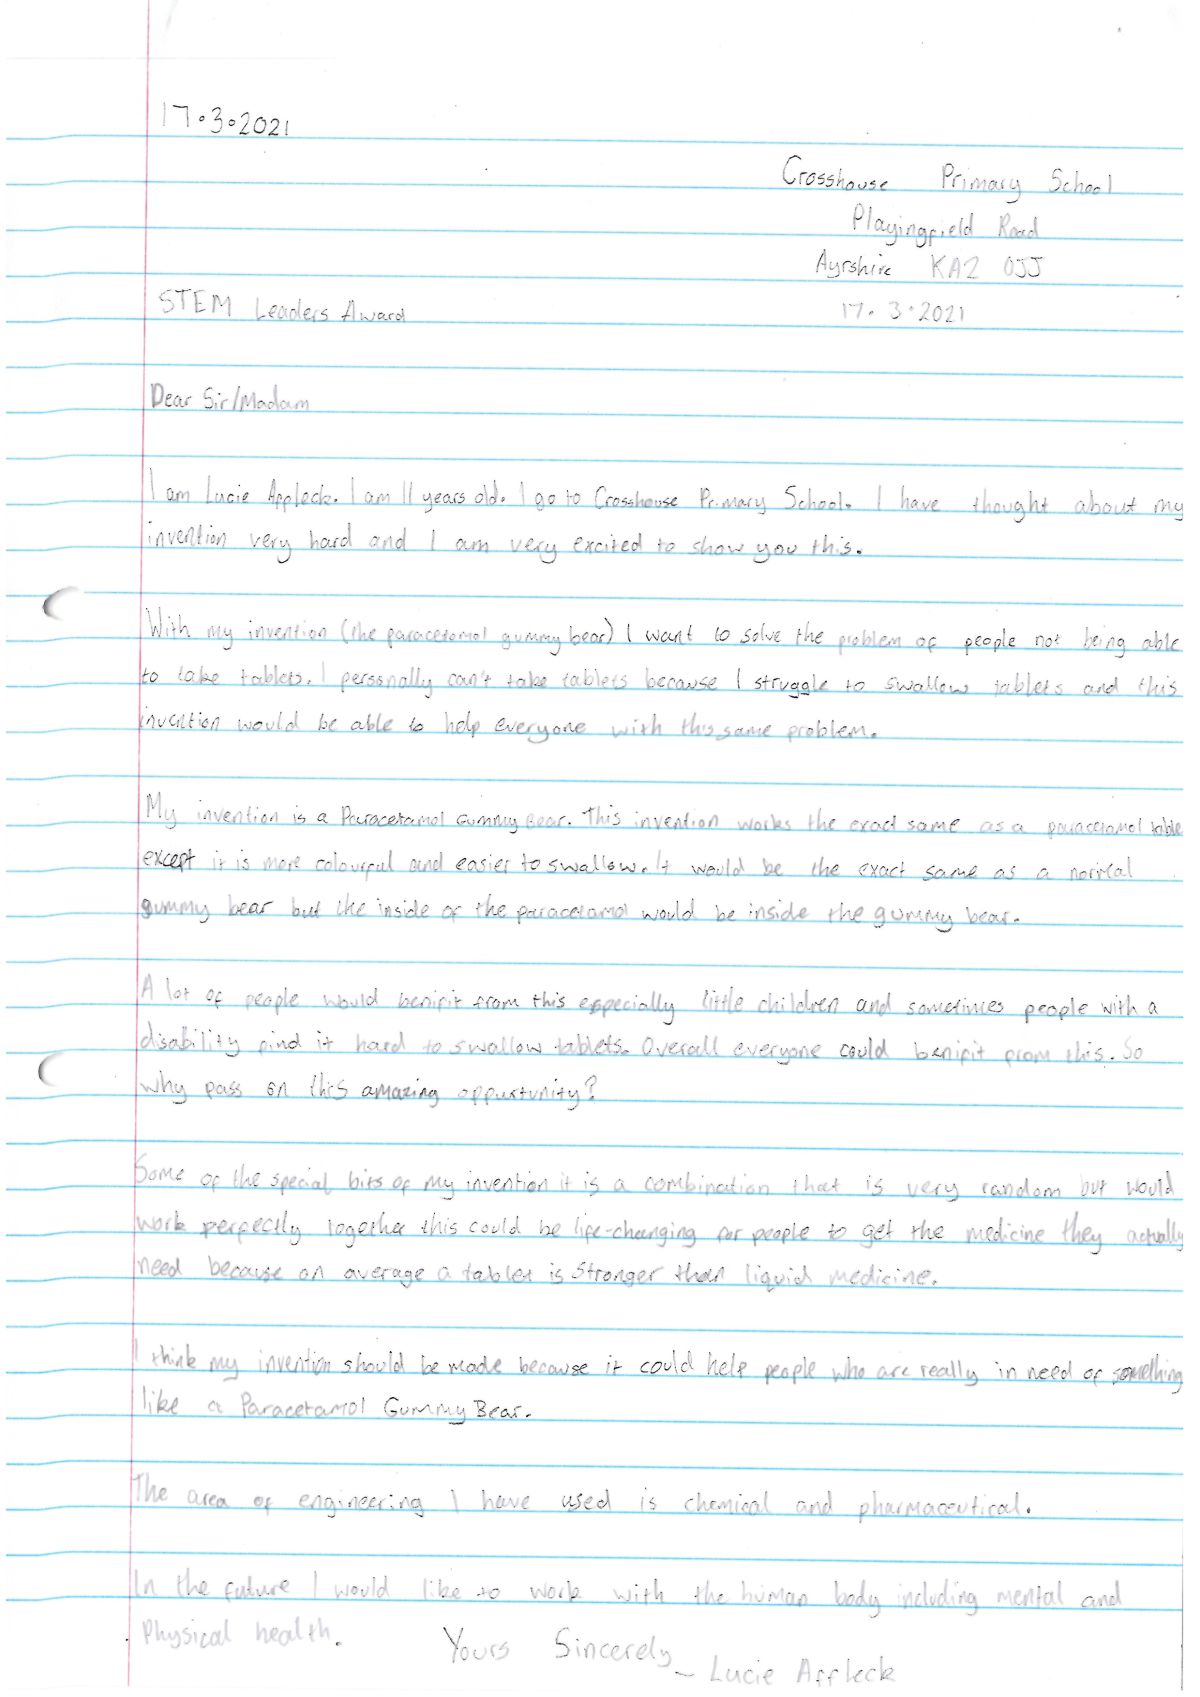 17.3.2021
Crosshouse Primary School
Playingfield Road
Ayrshire KA2 0JJ
STEM Leaders Award 17.3.2021
Dear Sir/Madam
I am Lucie Affleck. I am 11 years old. I go to Crosshouse Primary School. I have thought about my
invention very hard and I am very excited to show you this.
With my invention (the paracetamol gummy bear) I want to solve the problem of people not being able
to take tablets. I personally can't take tablets because I struggle to swallow tablets and this
invention would be able to help everyone with this same problem.
My invention is a Paracetamol Gummy Bear. This invention works the exact same as a paracetamol table
except it is more colourful and easier to swallow. It would be the exact same as a normal
gummy bear but the inside of the paracetamol would be inside the gummy bear.
A lot of people would benifit from this especially little children and sometimes people with a
disability find it hard to swallow tablets. Overall everyone could benifit from this. So
why pass on this amazing oppurtunity?
Some of the special bits of my invention it is a combination that is very random but would
work perfectly together this could be life-changing for people to get the medicine they actually
need because on average a tablet is stronger than liquid medicine.
I think my invention should be made because it could help people who are really in need of something
like a Paracetamol Gummy Bear.
The area of engineering I have used is chemical and pharmaceutical.
In the future I would like to work with the human body including mental and
Physical health. Yours Sincerely
- Lucie Affleck